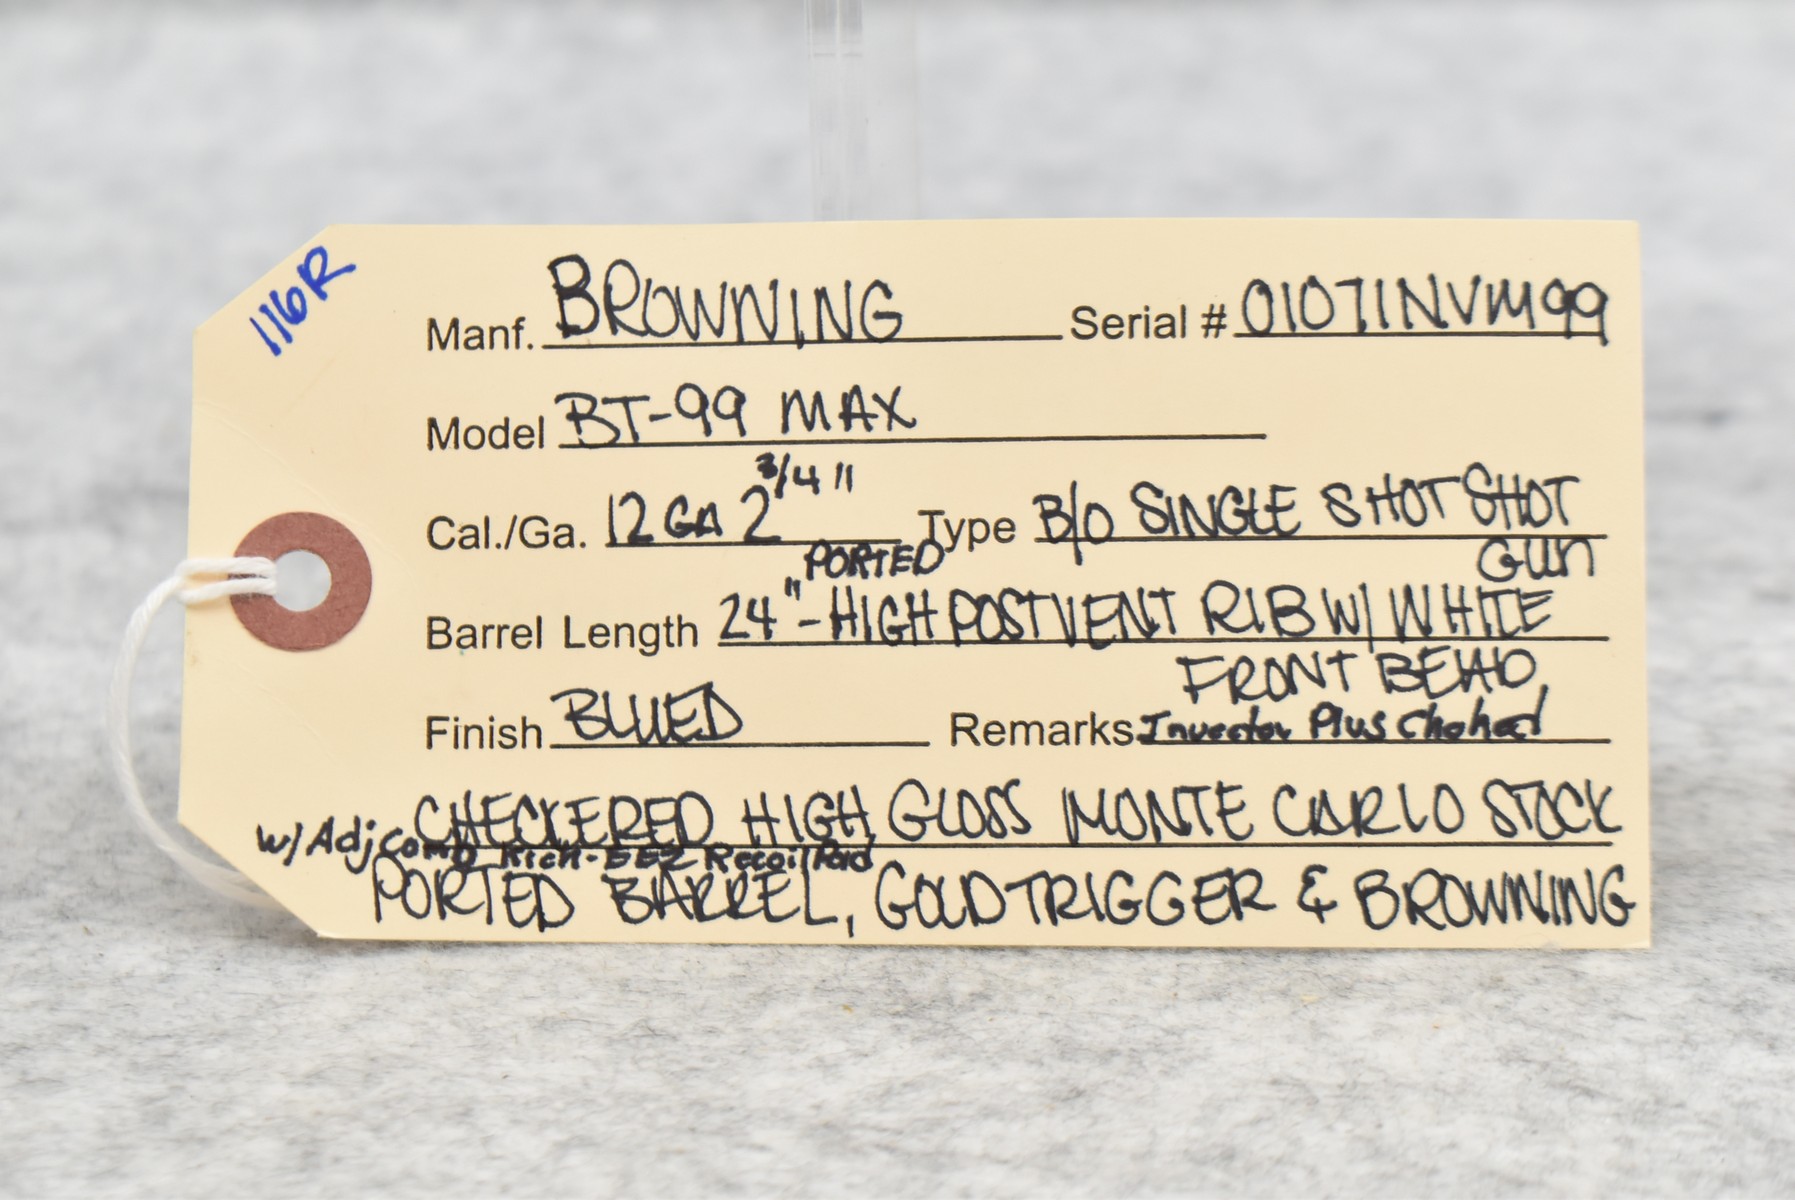 116R
Manf. BROWNING Serial # 01071NVM99
Model BT-99 MAX
Cal./Ga. 12 GA 2 3/4" Type B/O SINGLE SHOT SHOT
GUN
PORTED
Barrel Length 24" - HIGH POST VENT RIB W/ WHITE
FRONT BEAD,
Finish BLUED Remarks Invector Plus Choked
CHECKERED HIGH GLOSS MONTE CARLO STOCK
w/ Adj Comb Kick-EEZ Recoil Pad
PORTED BARREL, GOLD TRIGGER & BROWNING